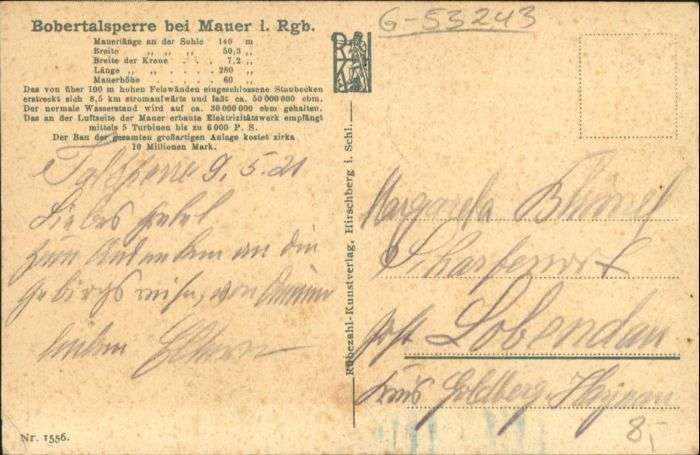 Bobertalsperre bei Mauer i. Rgb.
Mauerlänge an der Sohle 140 m
Breite „ „ „ 50,3 „
Breite der Krone . . . 7,2 „
Länge „ „ . . . 280 „
Mauerhöhe . . . . 60 „
Das von über 100 m hohen Felswänden eingeschlossene Staubecken
erstreckt sich 8,5 km stromaufwärts und faßt ca. 50 000 000 cbm.
Der normale Wasserstand wird auf ca. 30 000 000 cbm gehalten.
Das an der Luftseite der Mauer erbaute Elektrizitätswerk empfängt
mittels 5 Turbinen bis zu 6 000 P. S.
Der Bau der gesamten großartigen Anlage kostet zirka
10 Millionen Mark.
9. 5. 21
Liebes
Zum Andenken an die
von
lieben Eltern
Nr. 1556.
Rübezahl-Kunstverlag, Hirschberg i. Schl.
G-53243
Margarete
Post Lobendau
Kreis Goldberg Haynau
8,-